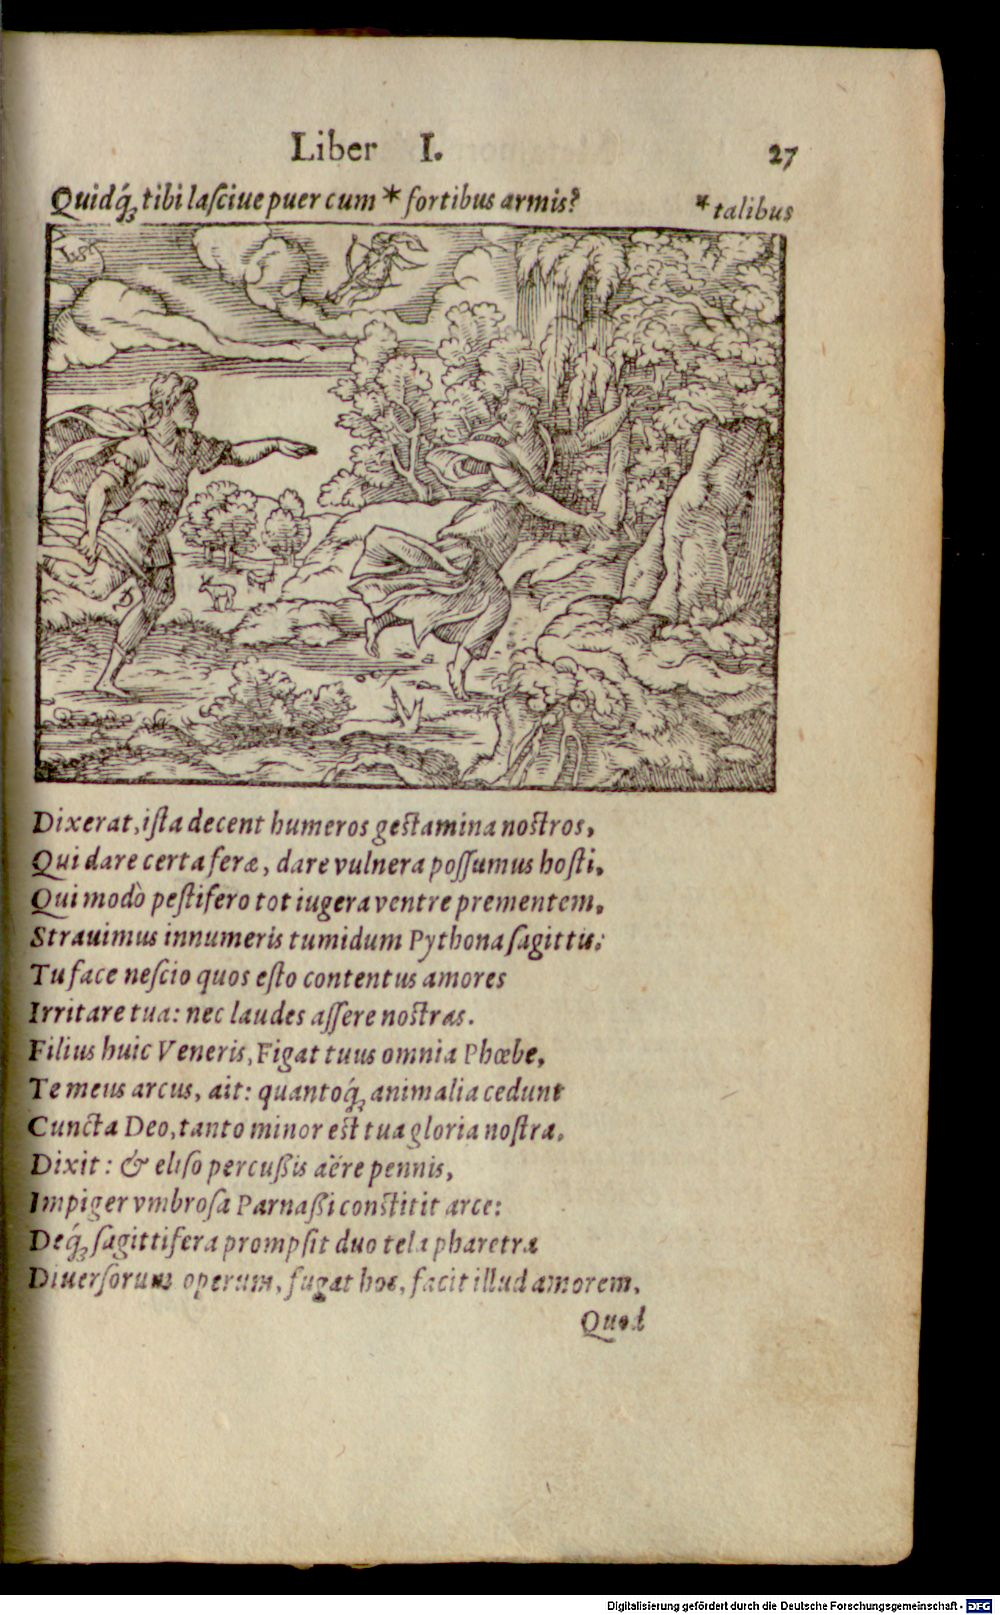 Liber I. 27
Quidq́; tibi laſciue puer cum * fortibus armis? * talibus
Dixerat, iſta decent humeros geſtamina noſtros,
Qui dare certa feræ, dare vulnera poſſumus hoſti,
Qui modò peſtifero tot iugera ventre prementem,
Strauimus innumeris tumidum Pythona ſagittis:
Tu face neſcio quos eſto contentus amores
Irritare tua: nec laudes aſſere noſtras.
Filius huic Veneris, Figat tuus omnia Phœbe,
Te meus arcus, ait: quantoq́; animalia cedunt
Cuncta Deo, tanto minor eſt tua gloria noſtra.
Dixit: & eliſo percuſsis aëre pennis,
Impiger vmbroſa Parnaſsi conſtitit arce:
Deq́; ſagittifera prompſit duo tela pharetra
Diuerſorum operum, fugat hoc, facit illud amorem,
Quod
Digitalisierung gefördert durch die Deutsche Forschungsgemeinschaft - DFG